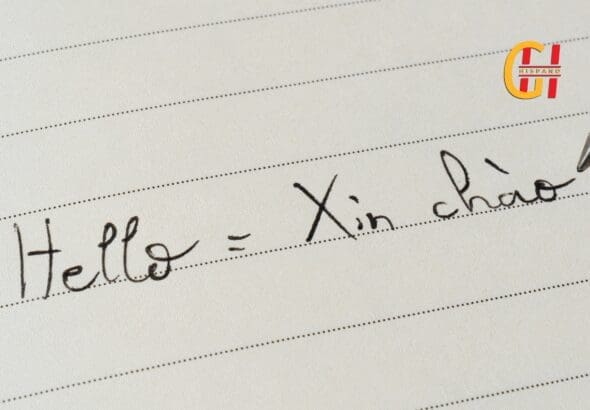 GH
HISPANO
Hello = Xin chào